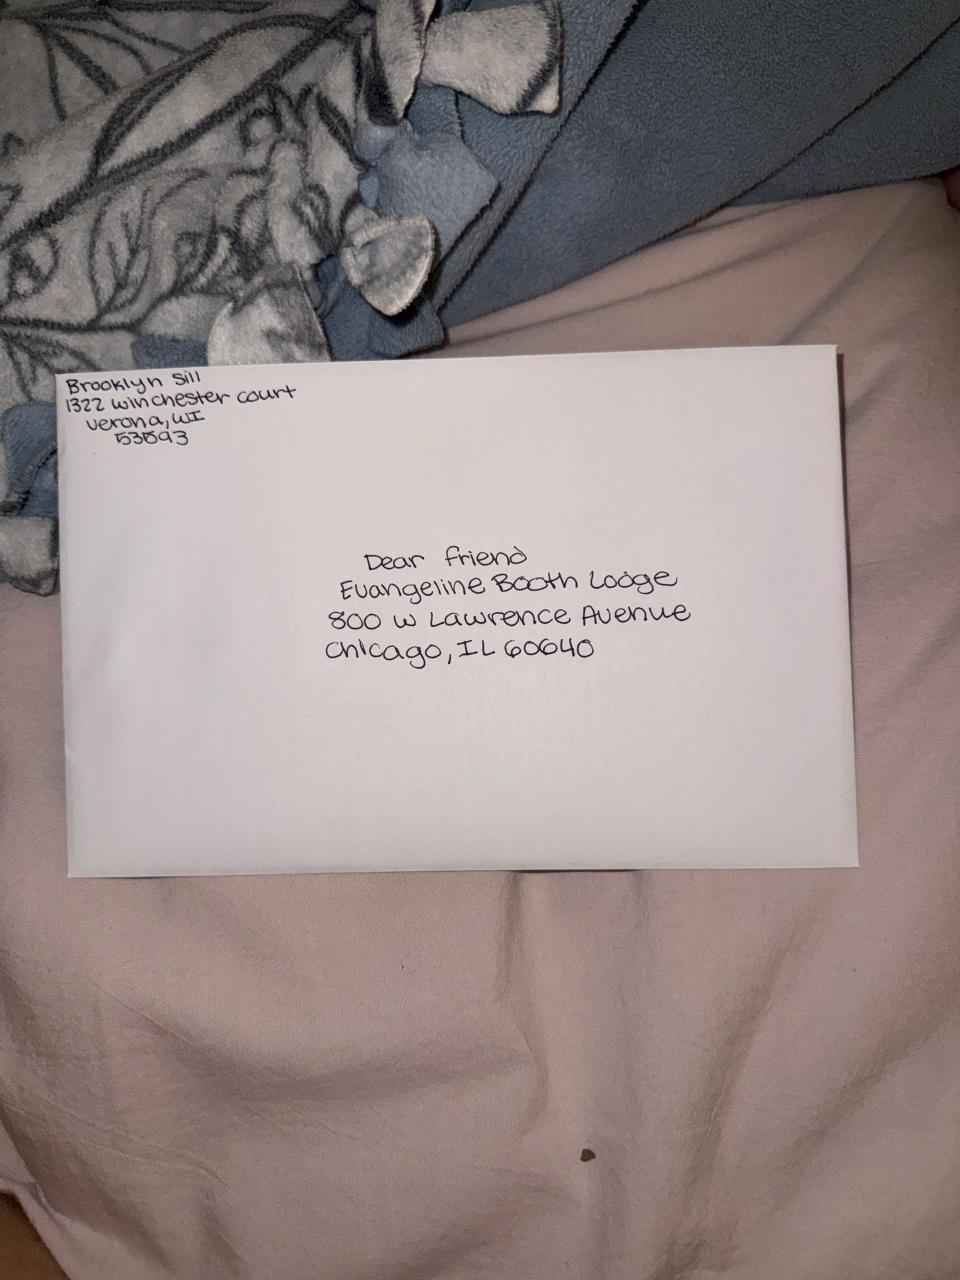 Brooklyn Sill
1322 Winchester court
Verona, WI
53593
Dear friend
Evangeline Booth Lodge
800 W Lawrence Avenue
Chicago, IL 60640